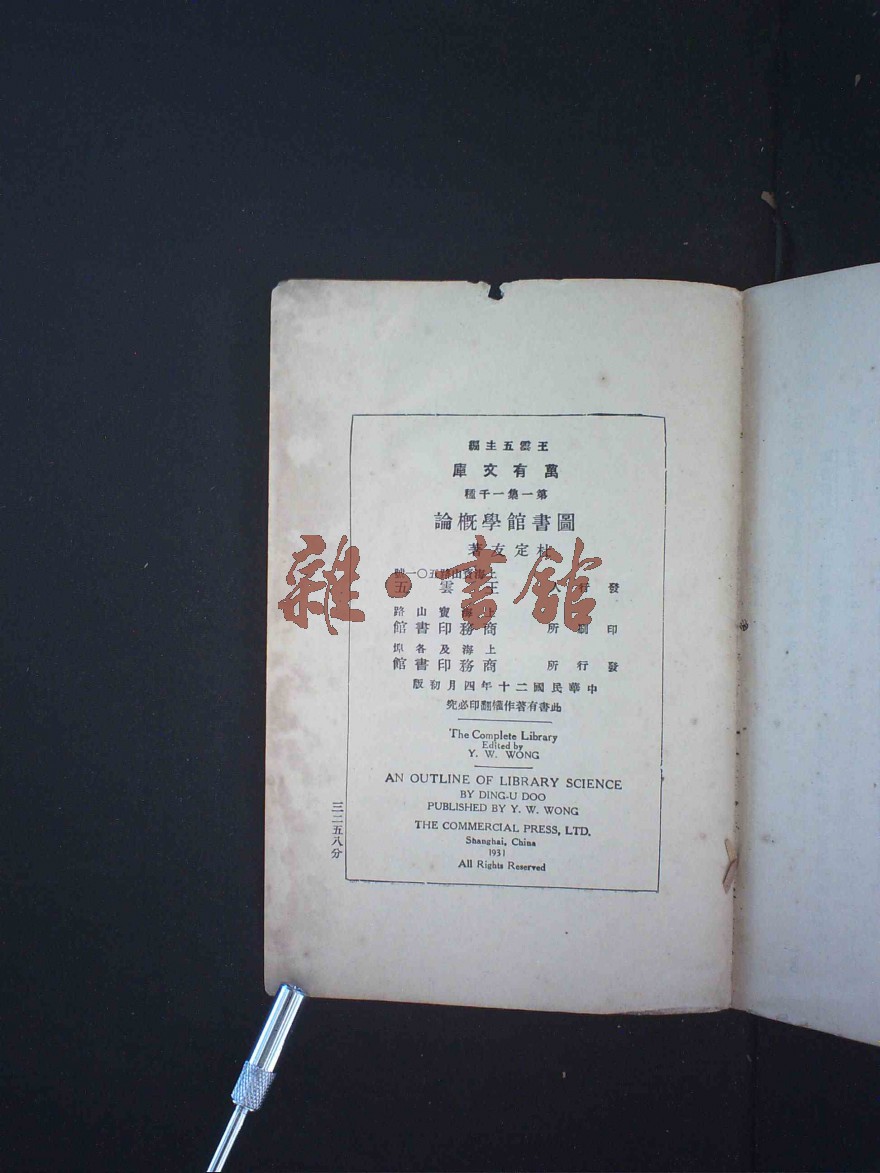 王雲五主編
萬有文庫
第一集一千種
圖書館學概論
杜定友著
上海寶山路五〇一號
發行人 王雲五
上海寶山路
印刷所 商務印書館
上海及各埠
發行所 商務印書館
中華民國二十年四月初版
此書有著作權翻印必究
The Complete Library
Edited by
Y. W. WONG
AN OUTLINE OF LIBRARY SCIENCE
BY DING-U DOO
PUBLISHED BY Y. W. WONG
THE COMMERCIAL PRESS, LTD.
Shanghai, China
1931
All Rights Reserved
三二五八分
雜·書館